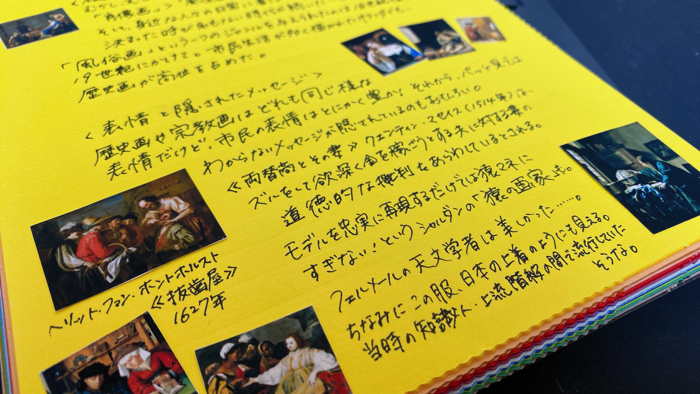 「風俗画」という一つのジャンルを与えられ
19世紀にかけて。市民生活が
歴史画が高位を占めた。
〈表情と隠されたメッセージ〉
歴史画や宗教画はどれも同じ様な
表情だけど、市民の表情はとにかく豊か。それから、パッと見では
わからないメッセージが隠されているのもおもしろい。
《両替商とその妻》クエンティン・マセイス(1514年)は、
ズルをして欲深く金を稼ごうとする夫に対する妻の
道徳的な批判をあらわしているとされる。
モデルを忠実に再現するだけでは猿マネに
すぎない!というシャルダンの「猿の画家」も。
フェルメールの天文学者は美しかった……。
ちなみにこの服、日本の上着のようにも見える。
当時の知識人・上流階級の間で流行していた
そうな。
ヘリット・ファン・ホントホルスト
《抜歯屋》
1627年